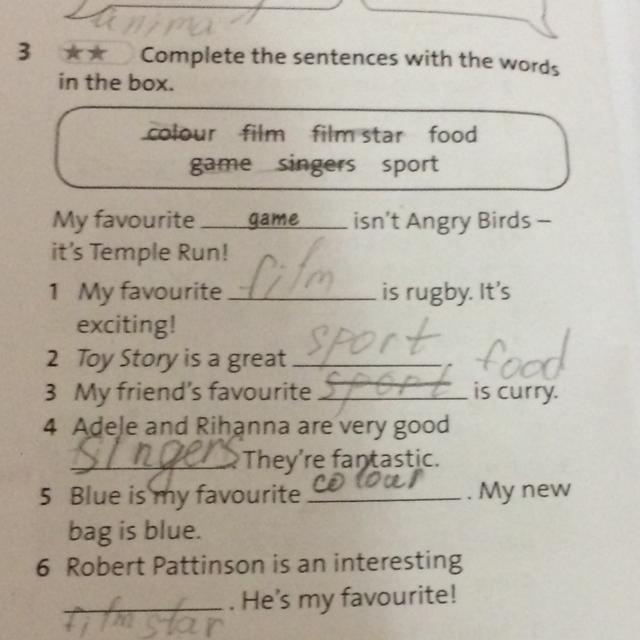 anima
3 ★★ Complete the sentences with the words
in the box.
colour film film star food
game singers sport
My favourite game isn't Angry Birds –
it's Temple Run!
1 My favourite film is rugby. It's
exciting!
2 Toy Story is a great sport.
food
3 My friend's favourite sport is curry.
4 Adele and Rihanna are very good
singers. They're fantastic.
5 Blue is my favourite colour. My new
bag is blue.
6 Robert Pattinson is an interesting
film star. He's my favourite!